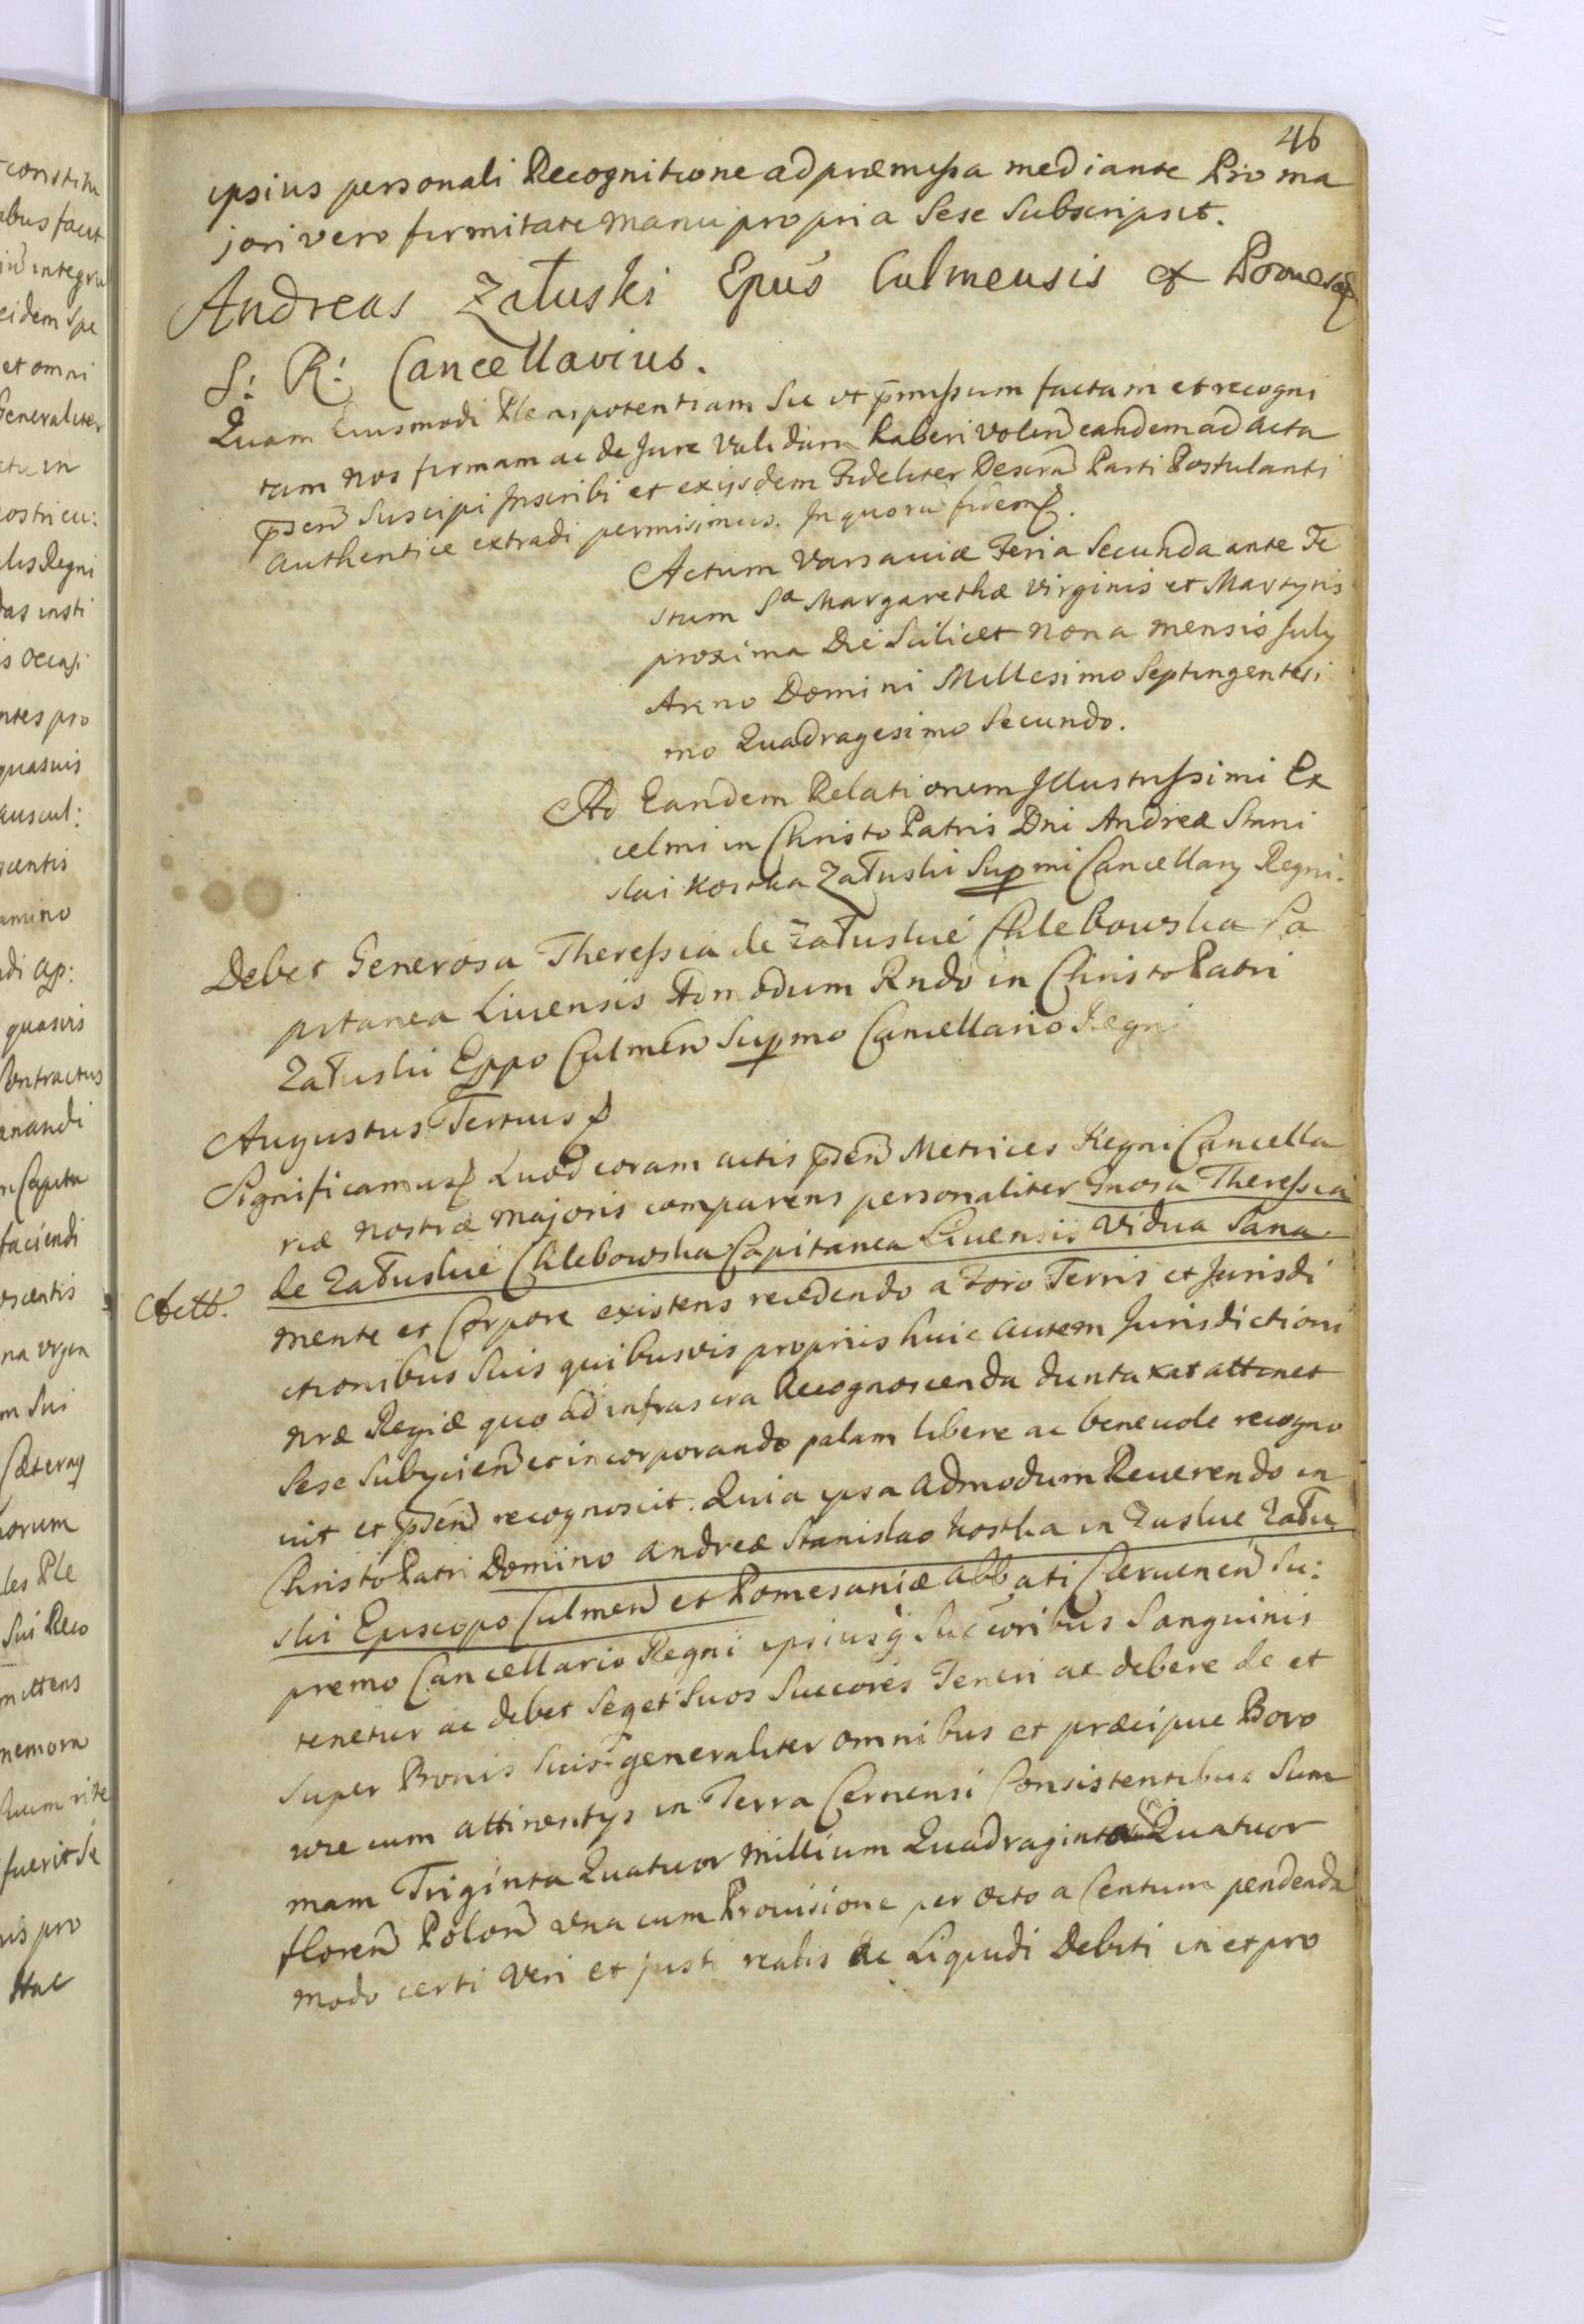 46
ipsius personali Recognitione ad præmissa mediante Pro ma
jori vero firmitate manu propria Sese Subscripsit.
Andreas Załuski Epus Culmensis et Pomesaē
S: R: Cancellarius.
Quam Eiusmodi Plenipotentiam Sic ut p̄missum factam et recogni
tam nos firmam ac de Jure Validam haberi volen̄ eandem ad acta
p̄sen̄ Suscipi Inscribi et exijsdem Fideliter Descra͠ Parti Postulanti
authentice extradi permisimus. In quoru͠ fidem.
Actum Varsaviæ Feria Secunda ante Fe
stum Sæ Margarethæ Virginis et Martyris
proxima Die Scilicet nona mensis July
Anno Domini Millesimo Septingentesi
mo Quadragesimo Secundo.
Ad Eandem Relationem Illustrissimi Ex
celmi in Christo Patris Dni Andreæ Stani
slai Kostka Załuski Supmi Cancellary Regni.
Debet Generosa Theressia de Załuskie Chlebowska Ca
pitanea Livensis Admodum Rndo in Christo Patri
Załuski Eppo Culmen̄ Supmo Cancellario Regni
Augustus Tertius
Significamus Quod coram actis p̄sen̄ Metrices Regni Cancella
riæ nostræ majoris comparens personaliter Gnosa Theressia
de Załuskie Chlebowska Capitanea Livensis Vidua Sana
mente et Corpore existens recedendo a Foro Terris et Jurisdi
ctionibus Suis quibusvis propriis huic autem Jurisdictioni
nræ Regiæ quo ad infrascra Recognoscenda duntaxat attinet
Sese Subyicien̄ et incorporando palam libere ac benevole recogno
vit et p̄sen̄ recognoscit. Quia ipsa Admodum Reverendo in
Christo Patri Domino Andreæ Stanislao Kostka in Zuskie Zału
ski Episcopo Culmen̄ et Pomesaniæ Abbati Czervenen̄ Su:
premo Cancellario Regni ipsiusq̄ Succoribus Sanguinis
tenetur ac debet Seq̄ et Suos Succores Teneri ac debere de et
Super Bonis Suis generaliter omnibus et præcipue Boro
wie cum attinentys in Terra Cernensi Consistentibus Sum
mam Triginta Quatuor Millium Quadraginta Quatuor
floren̄ Polon̄ una cum Provisione per octo a Centum pendenda
modo certi Veri et justi realis ac Liquidi Debiti in et pro